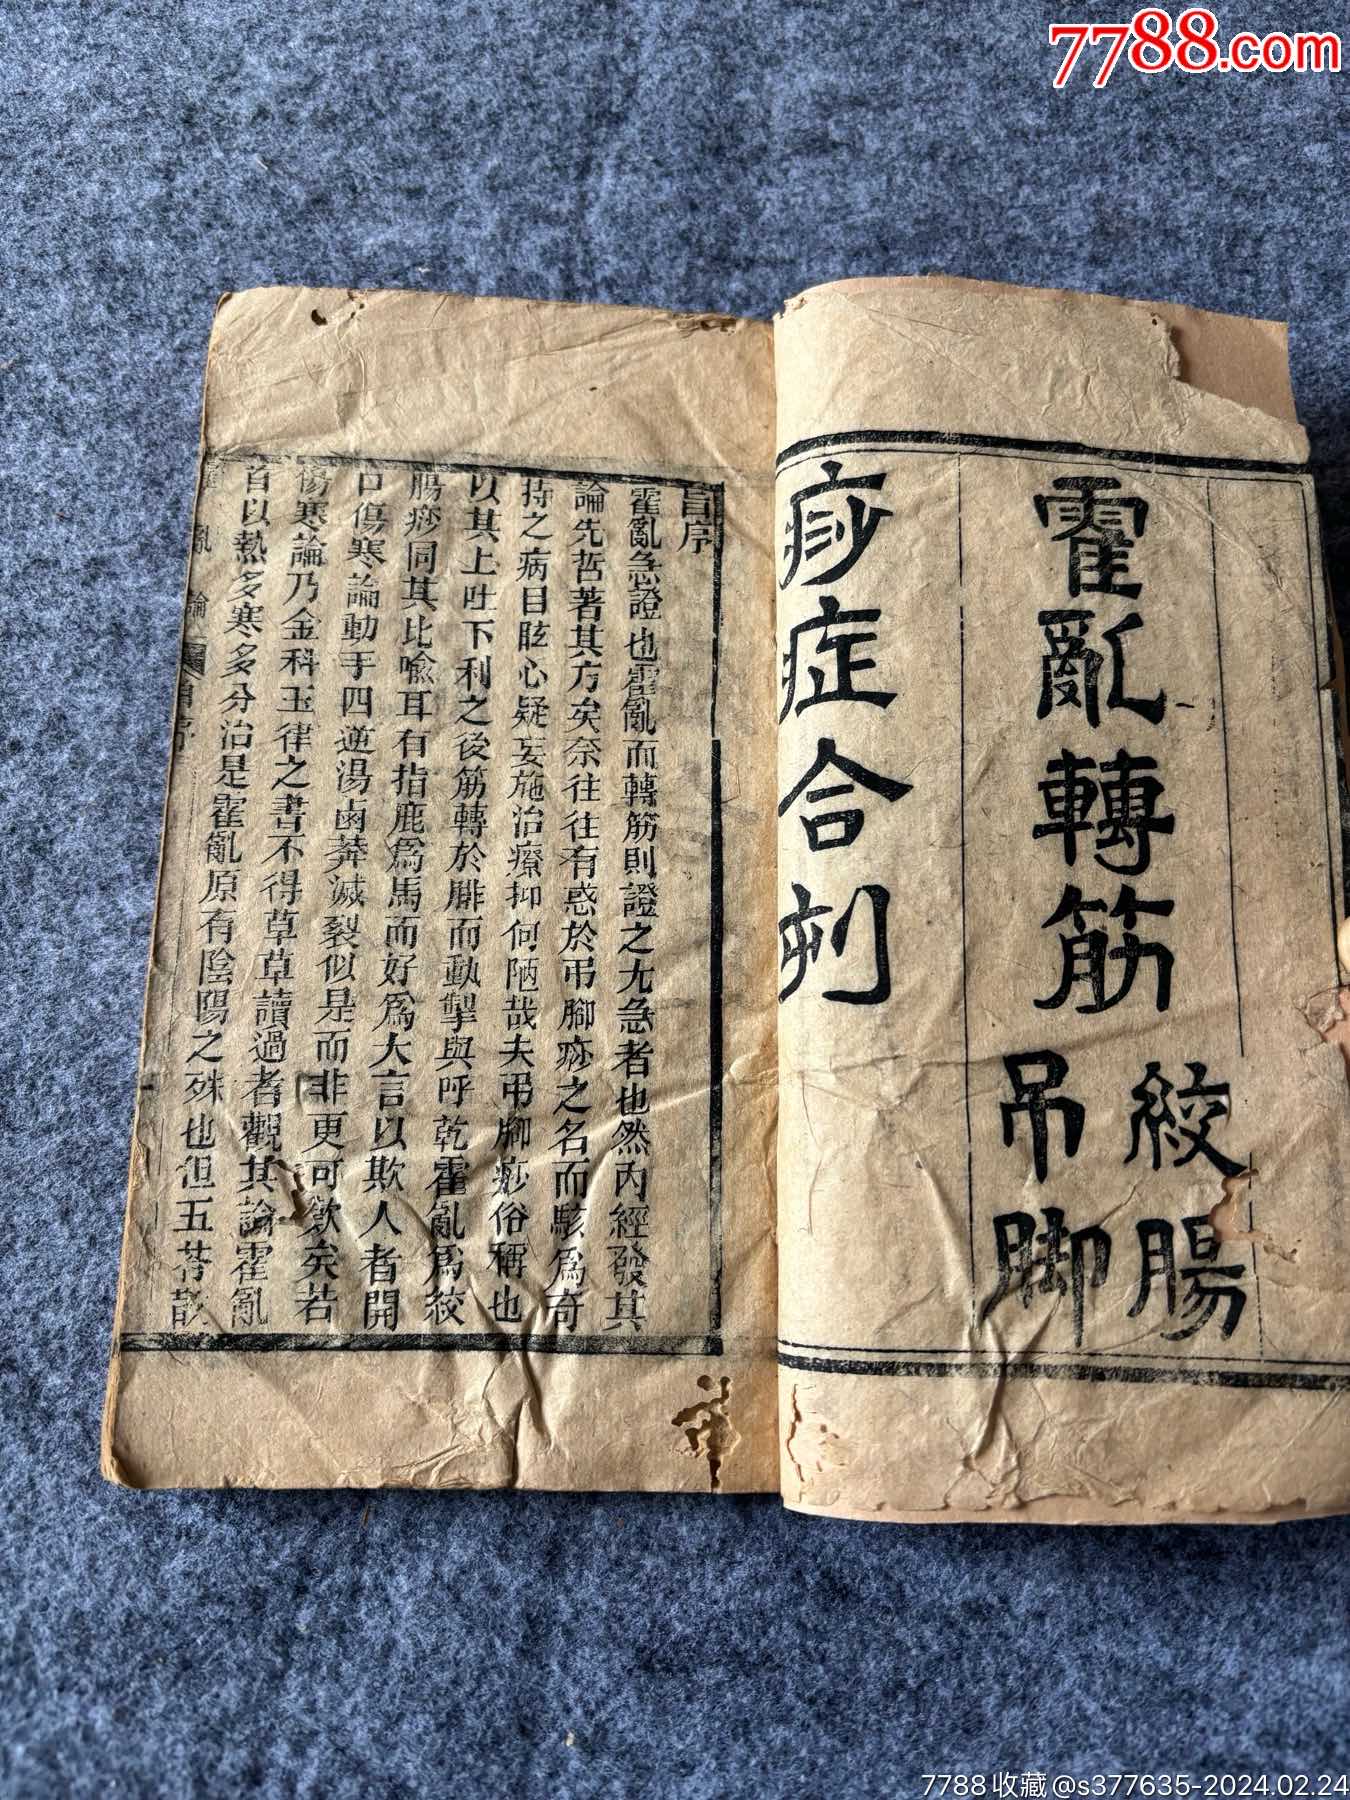 7788.com
霍亂轉筋
絞腸
吊脚
痧症合刻
序
霍亂急證也霍亂而轉筋則證之尤急者也然內經發其
論先哲著其方矣奈往往有惑於弔腳痧之名而駭爲奇
持之病目眩心疑妄施治療抑何陋哉夫弔腳痧俗稱也
以其上吐下利之後筋轉於腓而動掣與呼乾霍亂爲絞
腸痧同其比喩耳有指鹿爲馬而好爲大言以欺人者開
口傷寒論動手四逆湯鹵莽滅裂似是而非更可歎矣若
傷寒論乃金科玉律之書不得草草讀過者觀其論霍亂
首以熱多寒多分治是霍亂原有陰陽之殊也但五苓散
霍亂論 序
7788收藏@s377635-2024.02.24